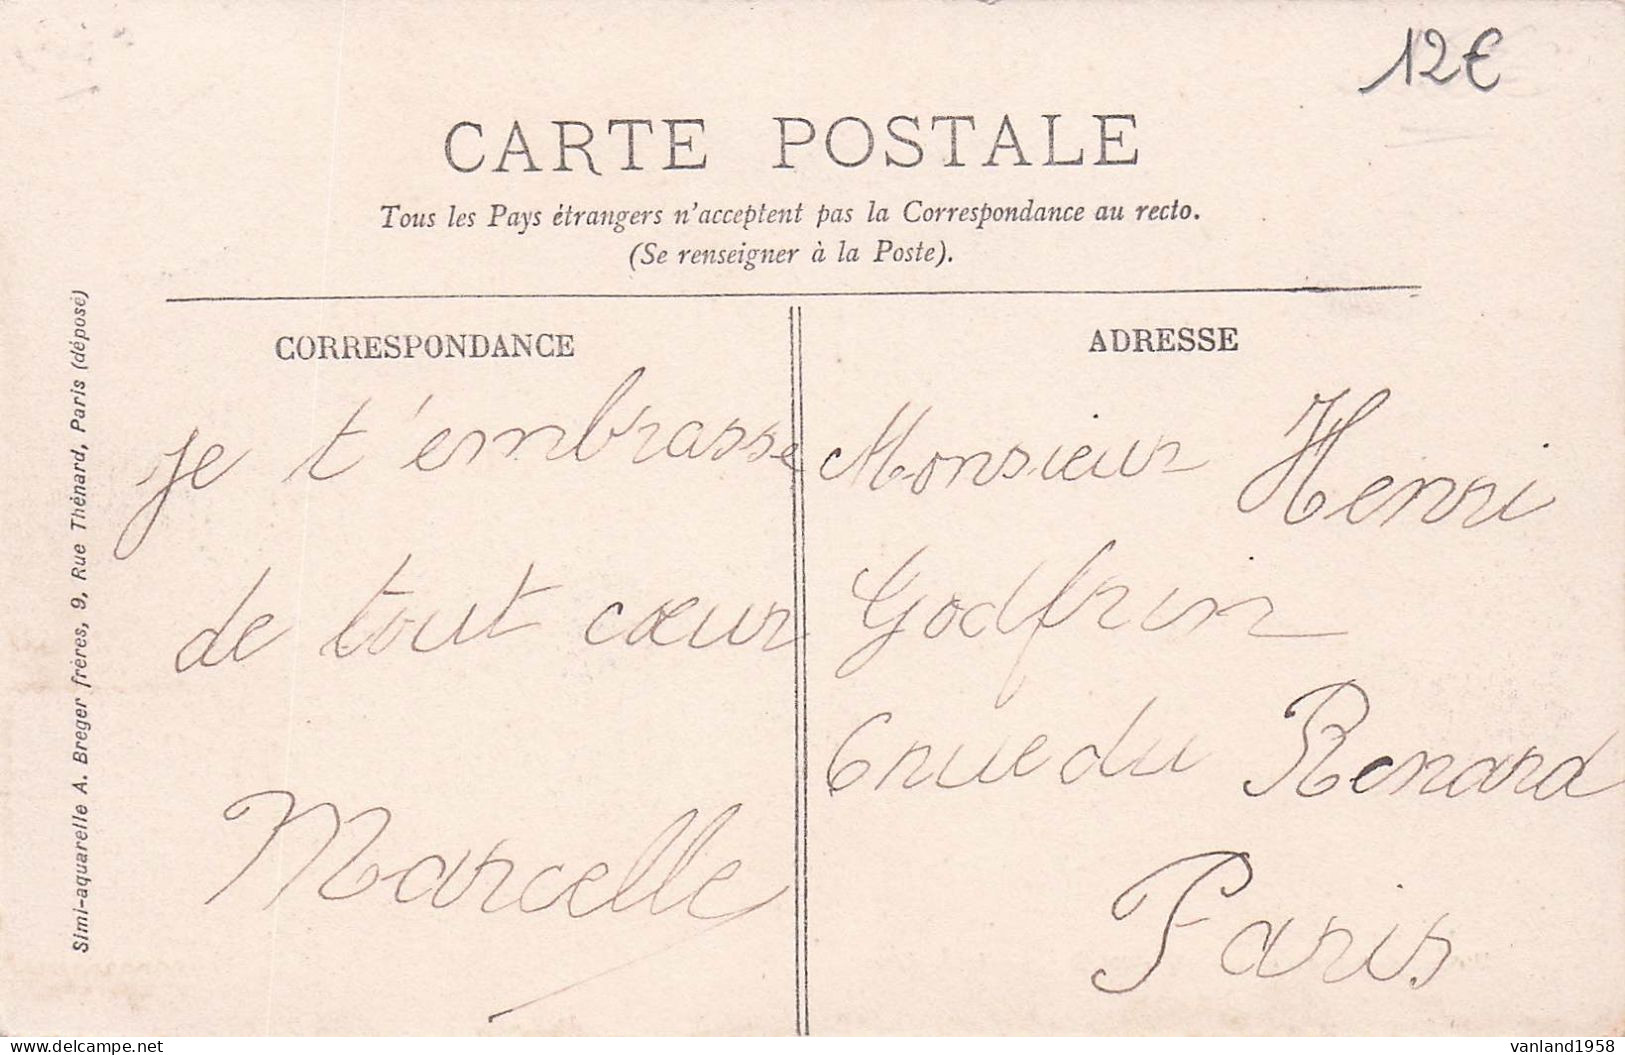 12€
CARTE POSTALE
Tous les Pays étrangers n'acceptent pas la Correspondance au recto.
(Se renseigner à la Poste).
CORRESPONDANCE
je t'embrasse
de tout cœur
Marcelle
ADRESSE
Monsieur Henri
Godfrin
6 rue du Renard
Paris
Simi-aquarelle A. Breger frères, 9, Rue Thénard, Paris (déposé)
delcampe.net
vanland1958